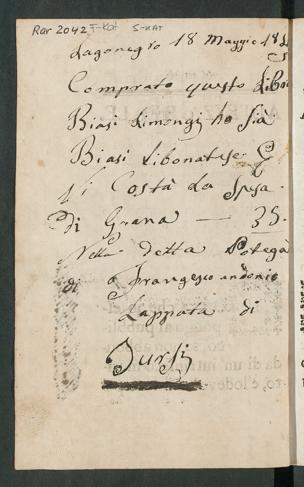 Rar 2042 F-Kat S-KAT
Lagonegro 18 Maggio 18
Comprato questo Libro
Biasi Limongi no Sia
Biasi Libonatese
li Costà La Spesa
Di Grana — 35.
Nella detta Potega
di Frangesco andonio
Lappata di
Tursi